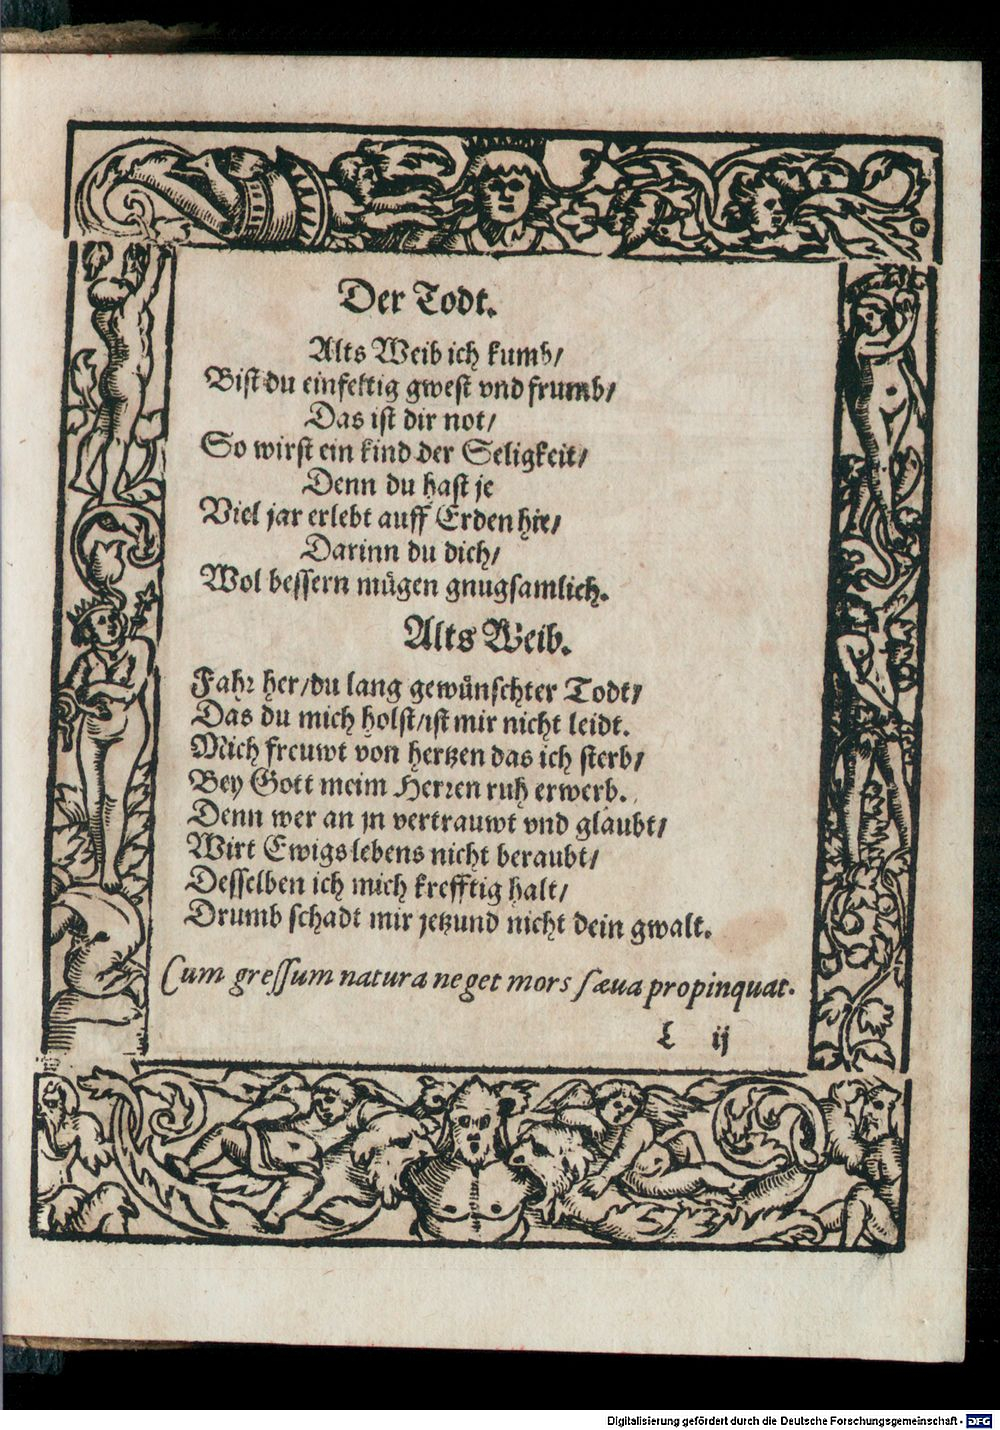 Der Todt.
Alts Weib ich kumb/
Bist du einfeltig gwest vnd frumb/
Das ist dir not/
So wirst ein kind der Seligkeit/
Denn du hast je
Viel jar erlebt auff Erden hie/
Darinn du dich/
Wol bessern mügen gnugsamlich.
Alts Weib.
Fahr her/du lang gewünschter Todt/
Das du mich holst/ist mir nicht leidt.
Mich freuwt von hertzen das ich sterb/
Bey Gott meim Herren ruh erwerb.
Denn wer an jn vertrauwt vnd glaubt/
Wirt Ewigs lebens nicht beraubt/
Desselben ich mich krefftig halt/
Drumb schadt mir jetzund nicht dein gwalt.
Cum gressum natura neget mors sæua propinquat.
ij
Digitalisierung gefördert durch die Deutsche Forschungsgemeinschaft - DFG